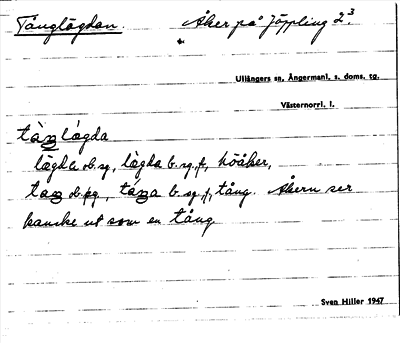 Tånglägdan. Åker på Jöppling 2³.
Ullångers sn, Ångermanl. s. doms. tg.
Västernorrl. l.
tàŋlə́gda
lə̀gda ob. sg., lə̀gda b. sg. f, höåker,
taŋ ob. sg., táŋa b. sg. f, tång. Åkern ser
kanske ut som en tång
Sven Hiller 1947